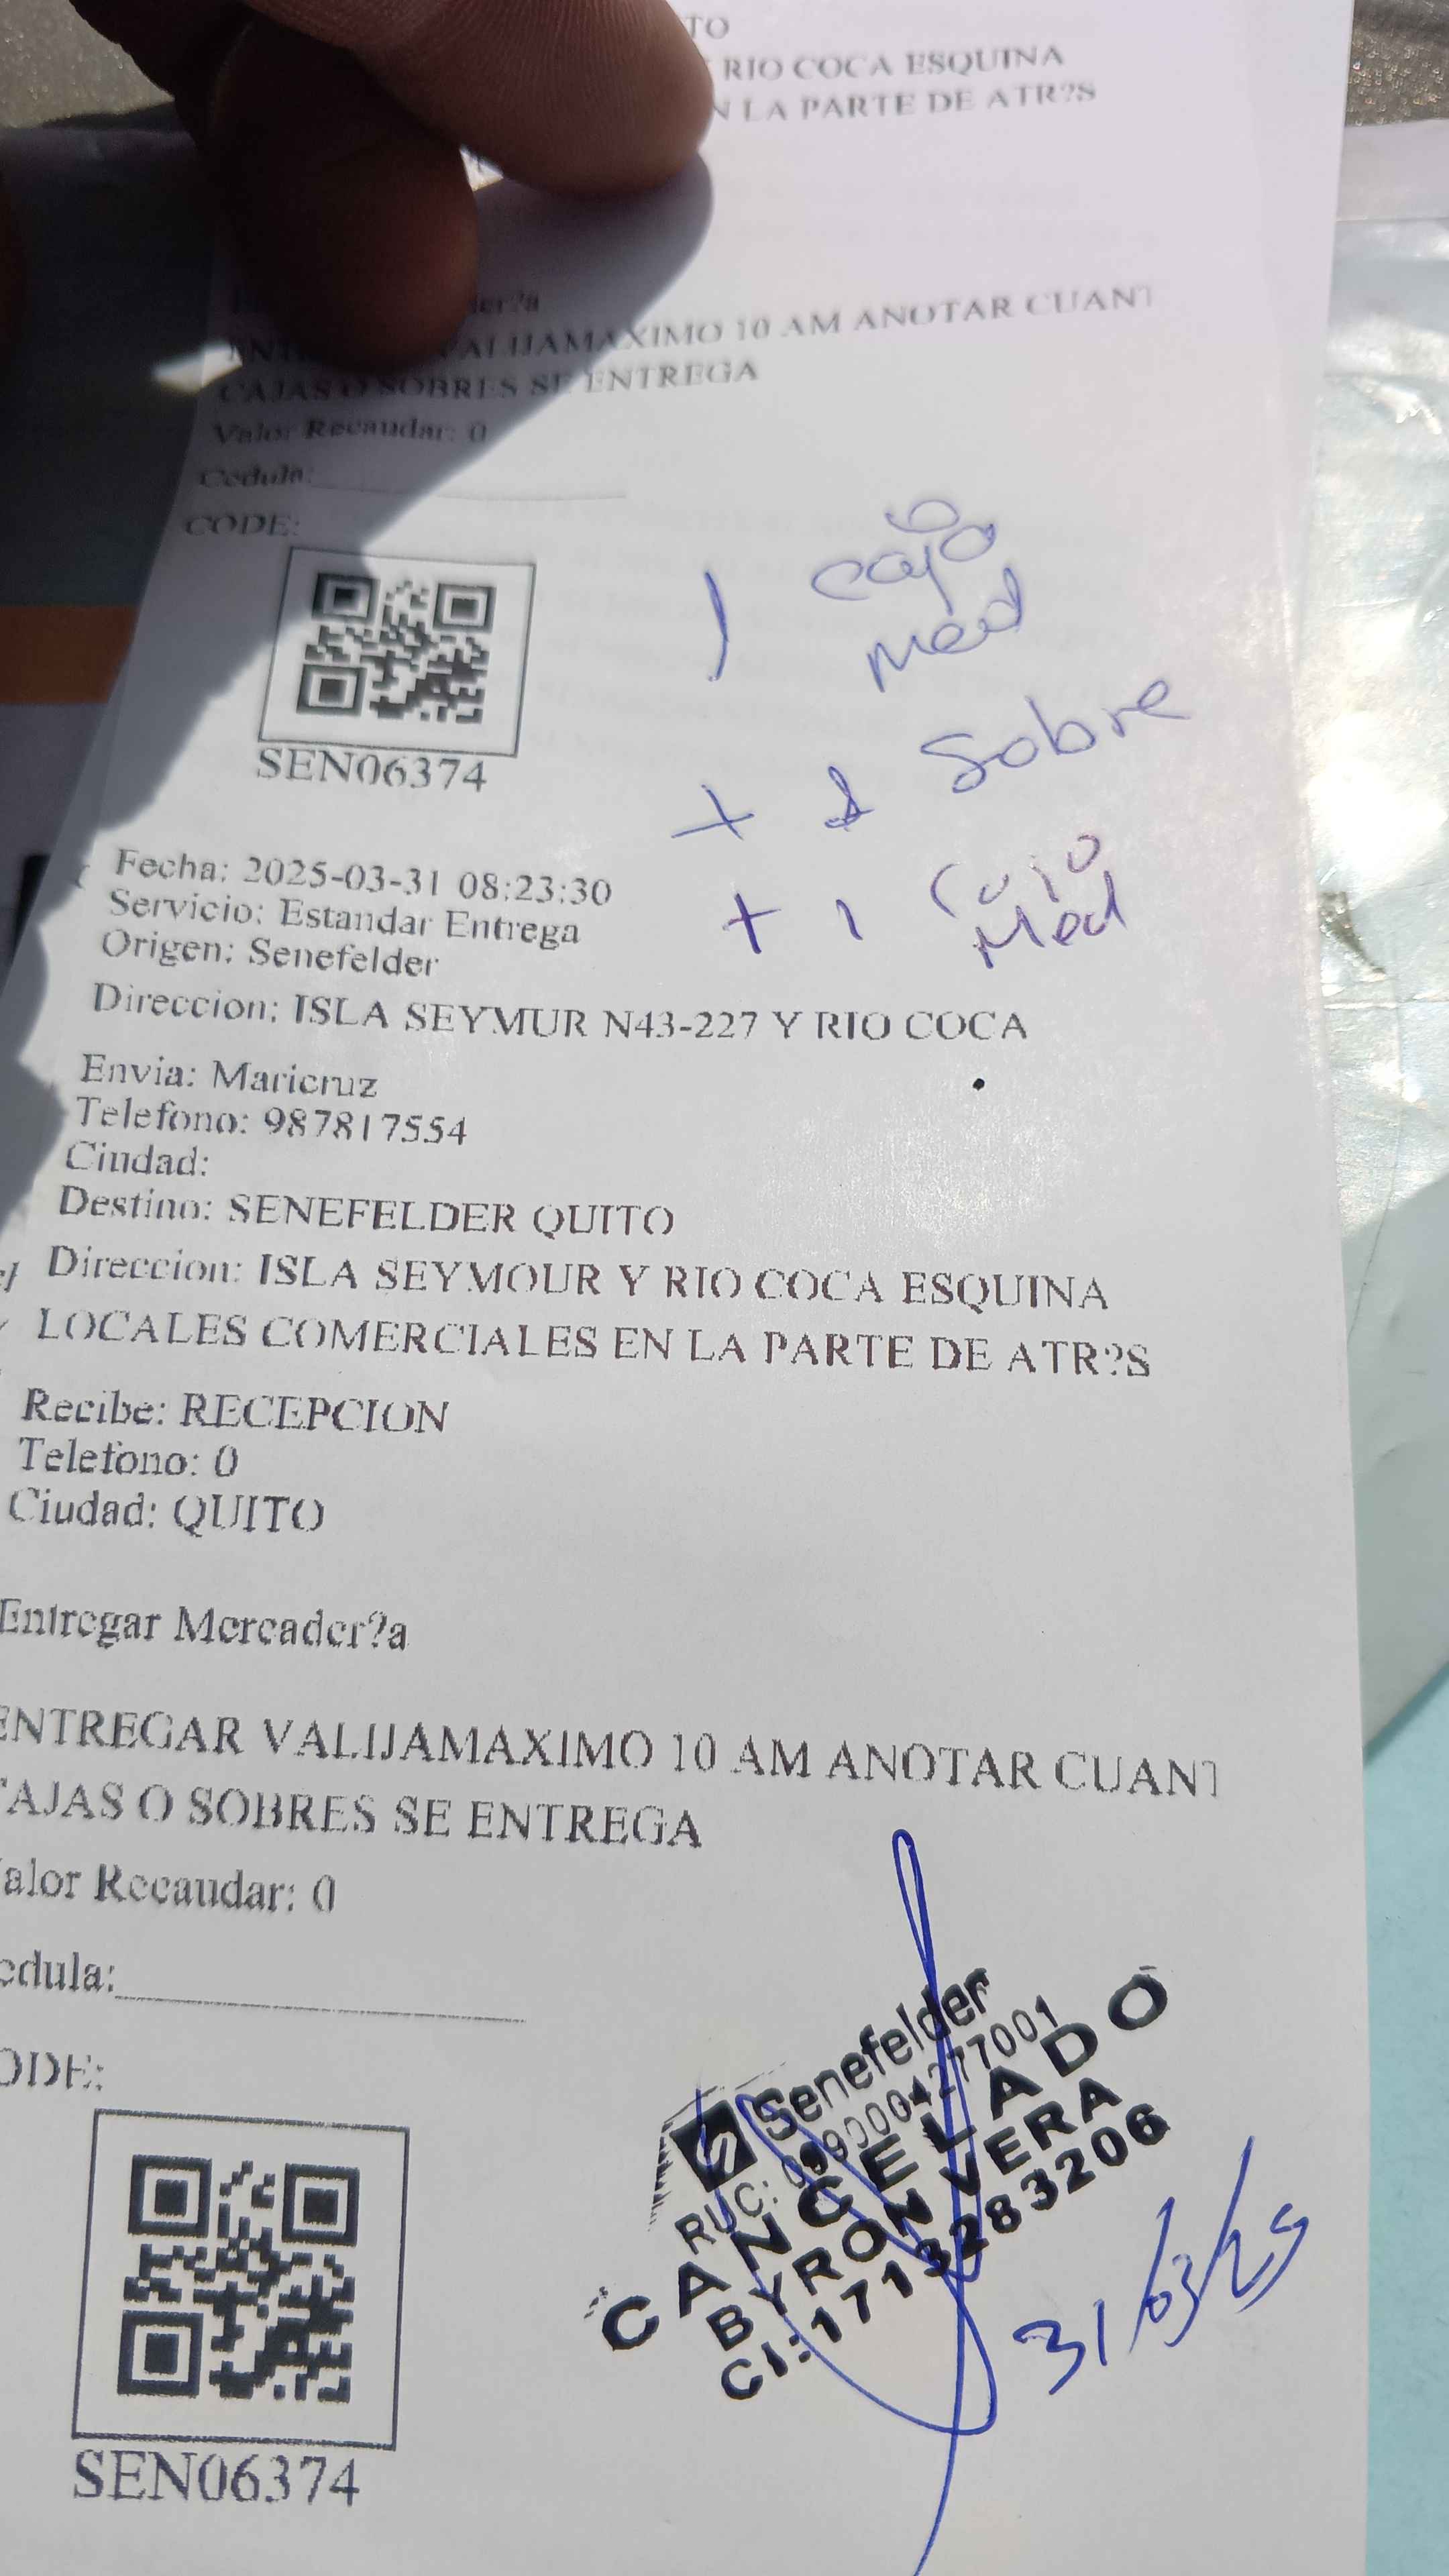 TO
RIO COCA ESQUINA
N LA PARTE DE ATR?S
der?a
VALIJAMAXIMO 10 AM ANOTAR CUANT
CAJAS O SOBRES SE ENTREGA
Valor Recaudar: 0
Cedula:
CODE:
1 caja
Med
SEN06374
+ 1 Sobre
+ 1 Caja
Med
Fecha: 2025-03-31 08:23:30
Servicio: Estandar Entrega
Origen: Senefelder
Direccion: ISLA SEYMUR N43-227 Y RIO COCA
Envia: Maricruz
Telefono: 987817554
Ciudad:
Destino: SENEFELDER QUITO
Direccion: ISLA SEYMOUR Y RIO COCA ESQUINA
LOCALES COMERCIALES EN LA PARTE DE ATR?S
Recibe: RECEPCION
Telefono: 0
Ciudad: QUITO
Entregar Mercader?a
ENTREGAR VALIJAMAXIMO 10 AM ANOTAR CUANT
CAJAS O SOBRES SE ENTREGA
alor Recaudar: 0
edula:
ODE:
Senefelder
RUC:
CANCELADO
BYRON VERA
CI.:1713283206
31/03/25
SEN06374